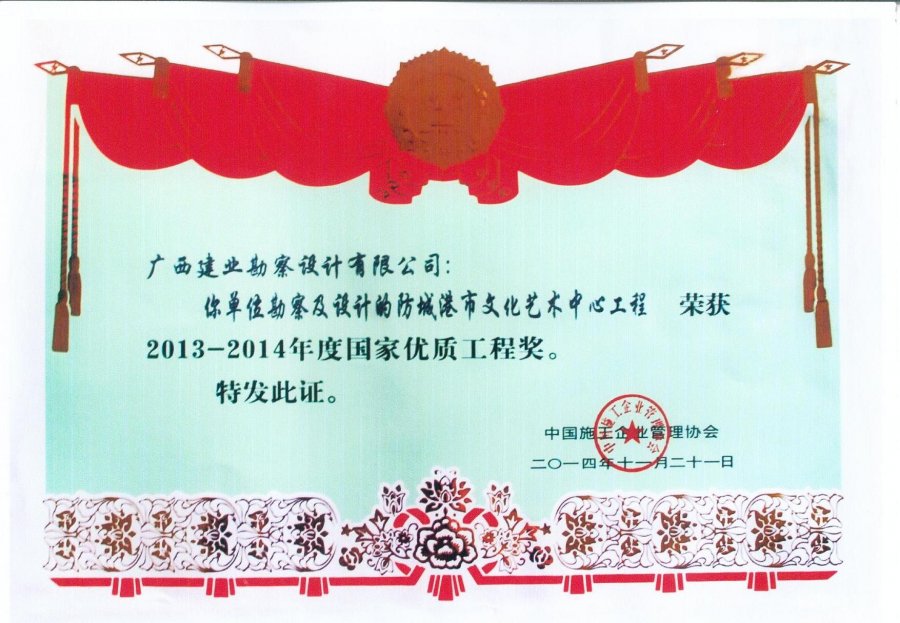 广西建业勘察设计有限公司：
你单位勘察及设计的防城港市文化艺术中心工程 荣获
2013-2014年度国家优质工程奖。
特发此证。
中国施工企业管理协会
二〇一四年十一月二十一日
中国施工企业管理协会